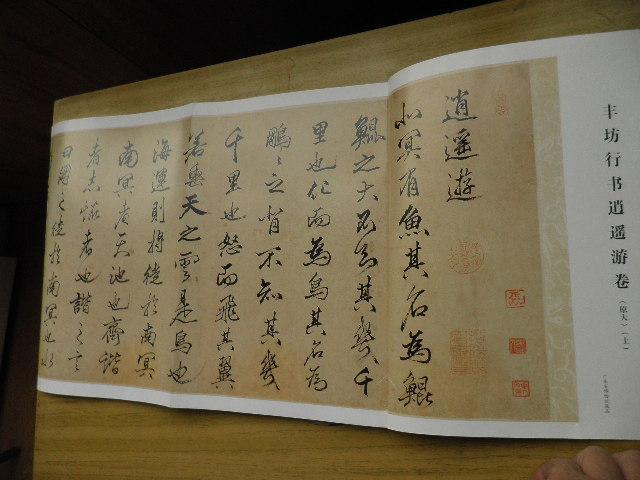 丰坊行书逍遥游卷
（原大）（上）
逍遥遊
北冥有魚其名為鯤
鯤之大不知其幾千
里也化而為鳥其名為
鵬〻之背不知其幾
千里也怒而飛其翼
若垂天之雲是鳥也
海運則將徙於南冥
南冥者天池也齊諧
者志怪者也諧之言
曰鵬之徙於南冥也水